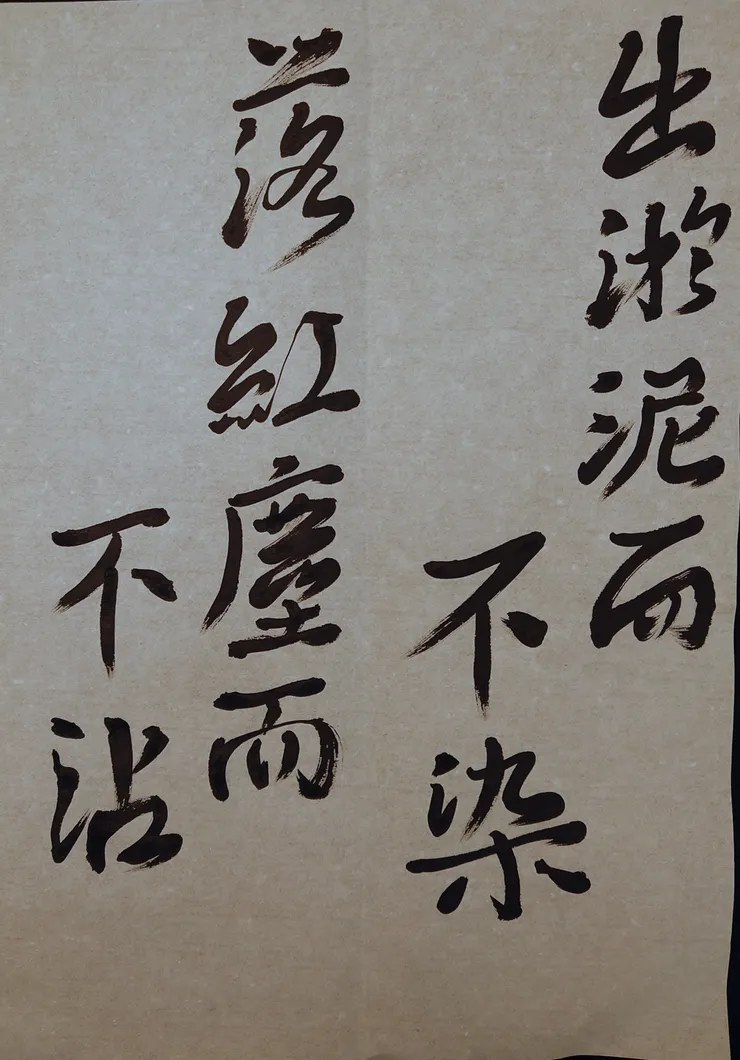 出淤泥而
不染
落紅塵而
不沾